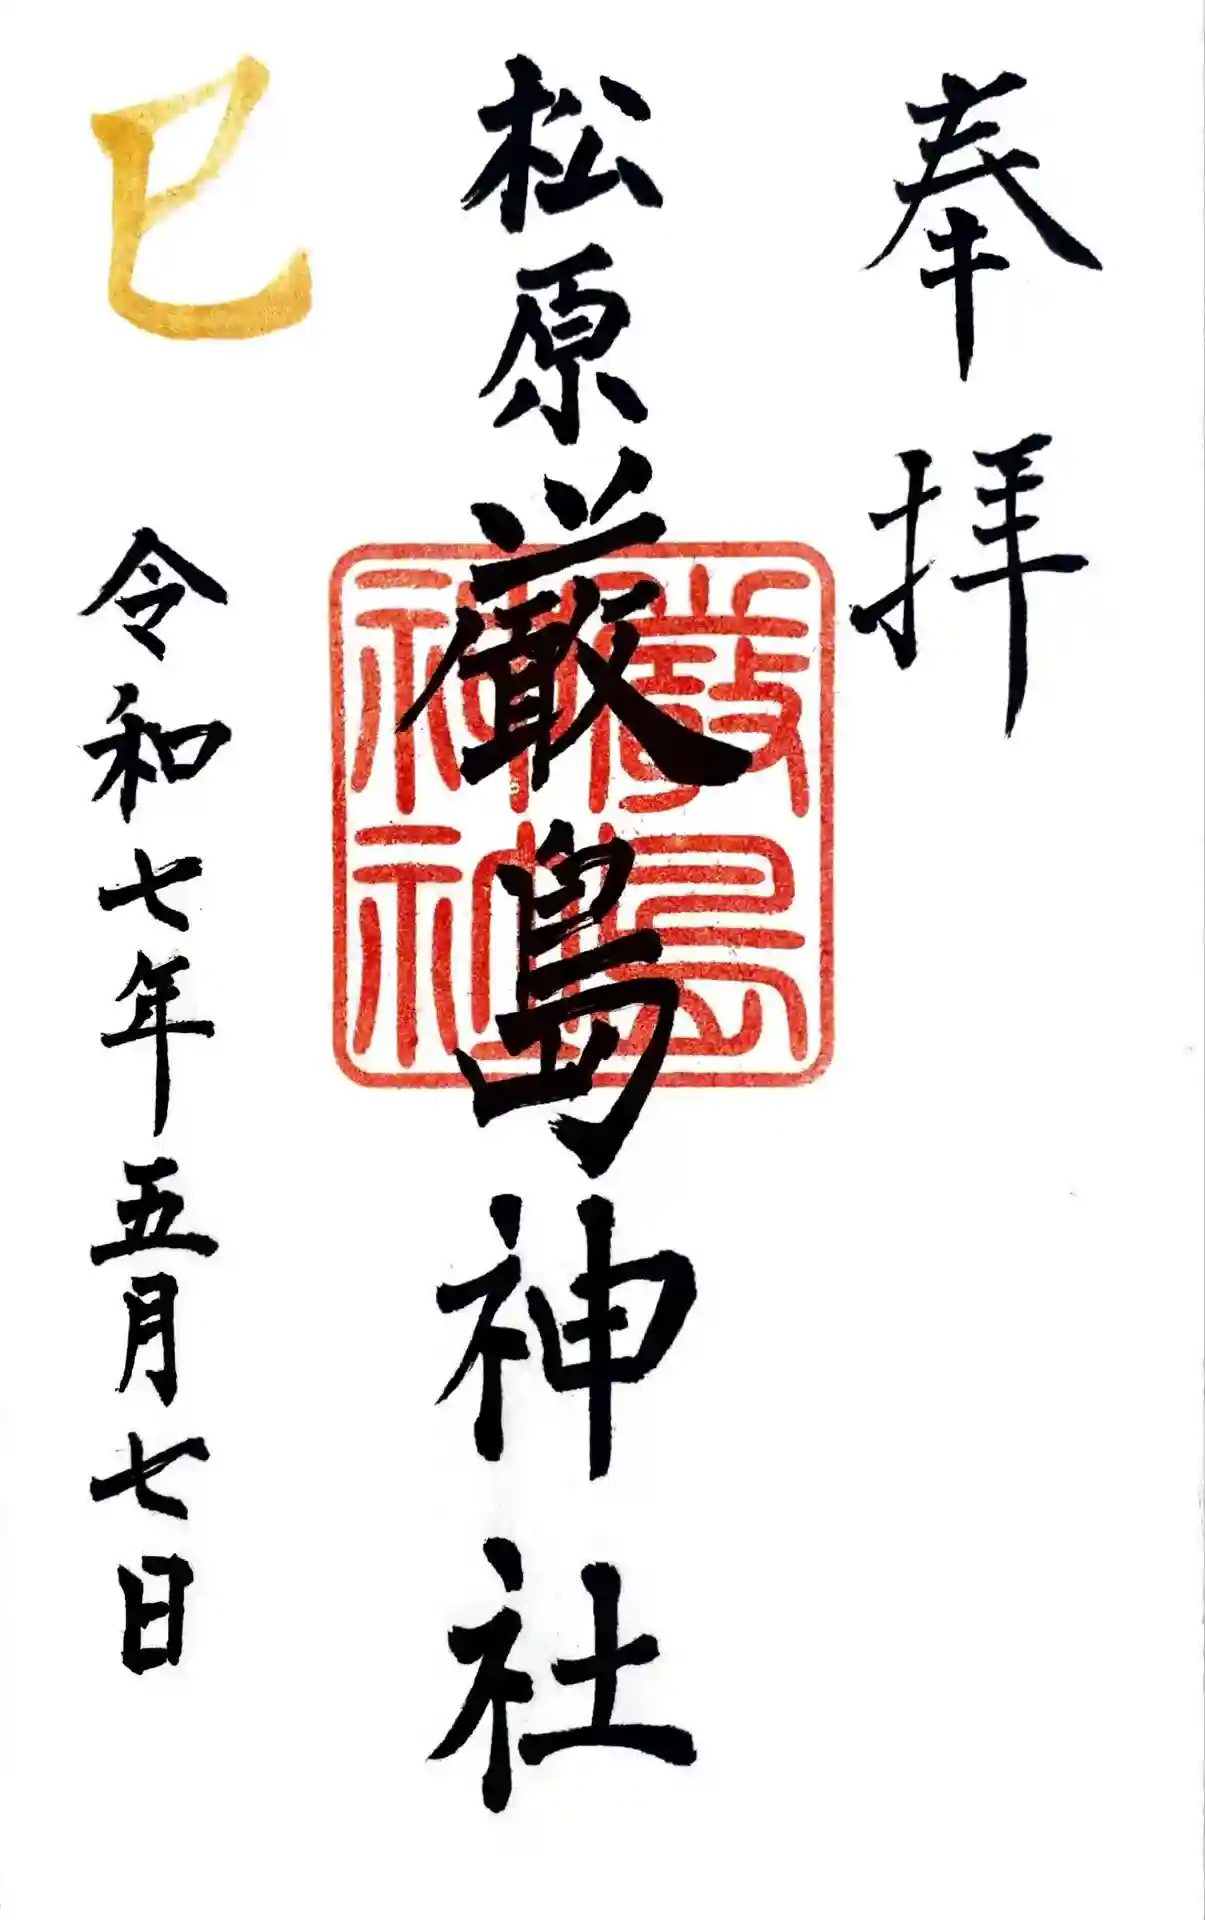 奉拝
松原厳島神社
厳島
神社
巳
令和七年五月七日